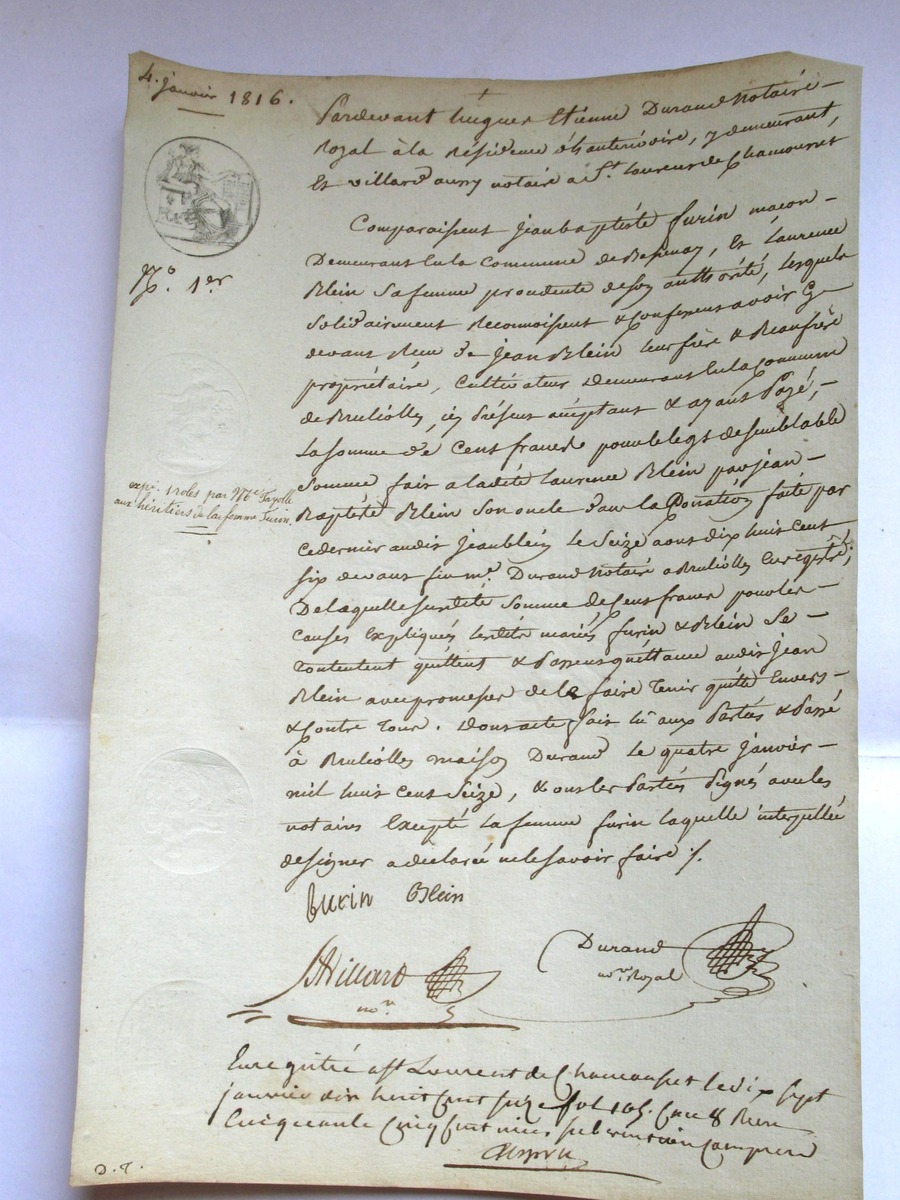 4. janvier 1816.
Pardevant hugues Etienne Durand Notaire
Royal à la Résidence d'hauterivoire, y demeurant,
Et villard aussy notaire a St. Laurent de Chamousset
No. 1er
Comparaissent jean baptiste furin macon
Demeurant en la Commune de Bessenay, Et Laurence
Blein Sa femme procedente de son authorité, Lesquels
Solidairement Reconnoissent & Confessent avoir Cy
devant Recu de jean Blein leur frère & Beaufrère
propriétaire, Cultivateur Demeurant En la Commune
de Brulioles, icy présent acceptant & ayant Payé,
La somme de Cent francs pour le legs de semblable
Somme fait a ladite Laurence Blein par jean
expé. 1 roles par Me. Fayolle
aux héritiers de la femme Furon.
Baptiste Blein Son oncle dans la Donation faite par
ce dernier audit jean blein Le Seize aout dix huit cent
six devant feu me. Durand Notaire a Brulioles Enregistré;
De laquelle susdite Somme de Cent francs pour les
causes Expliqués lesdits mariés furin & Blein Se
Contentent quittent & Passent quittance audit jean
Blein avec promesse de le faire Tenir quitte Envers
& Contre Tous. Dont acte fait lû aux Parties & Passé
à Brulioles maison Durand Le quatre janvier
mil huit Cent Seize, & ont les Parties Signés avec les
notaires Excepté La femme furin laquelle interpellée
de signer a déclarée ne le savoir faire ./.
Furin Blein
Villard
nore.
Durand
nore. Royal
Enregistré a St Laurent de Chamousset le dix sept
janvier dix huit Cent seize fol 165. Case 8 Recu
Cinquante Cinq Centimes subvention Comprise
D.T.